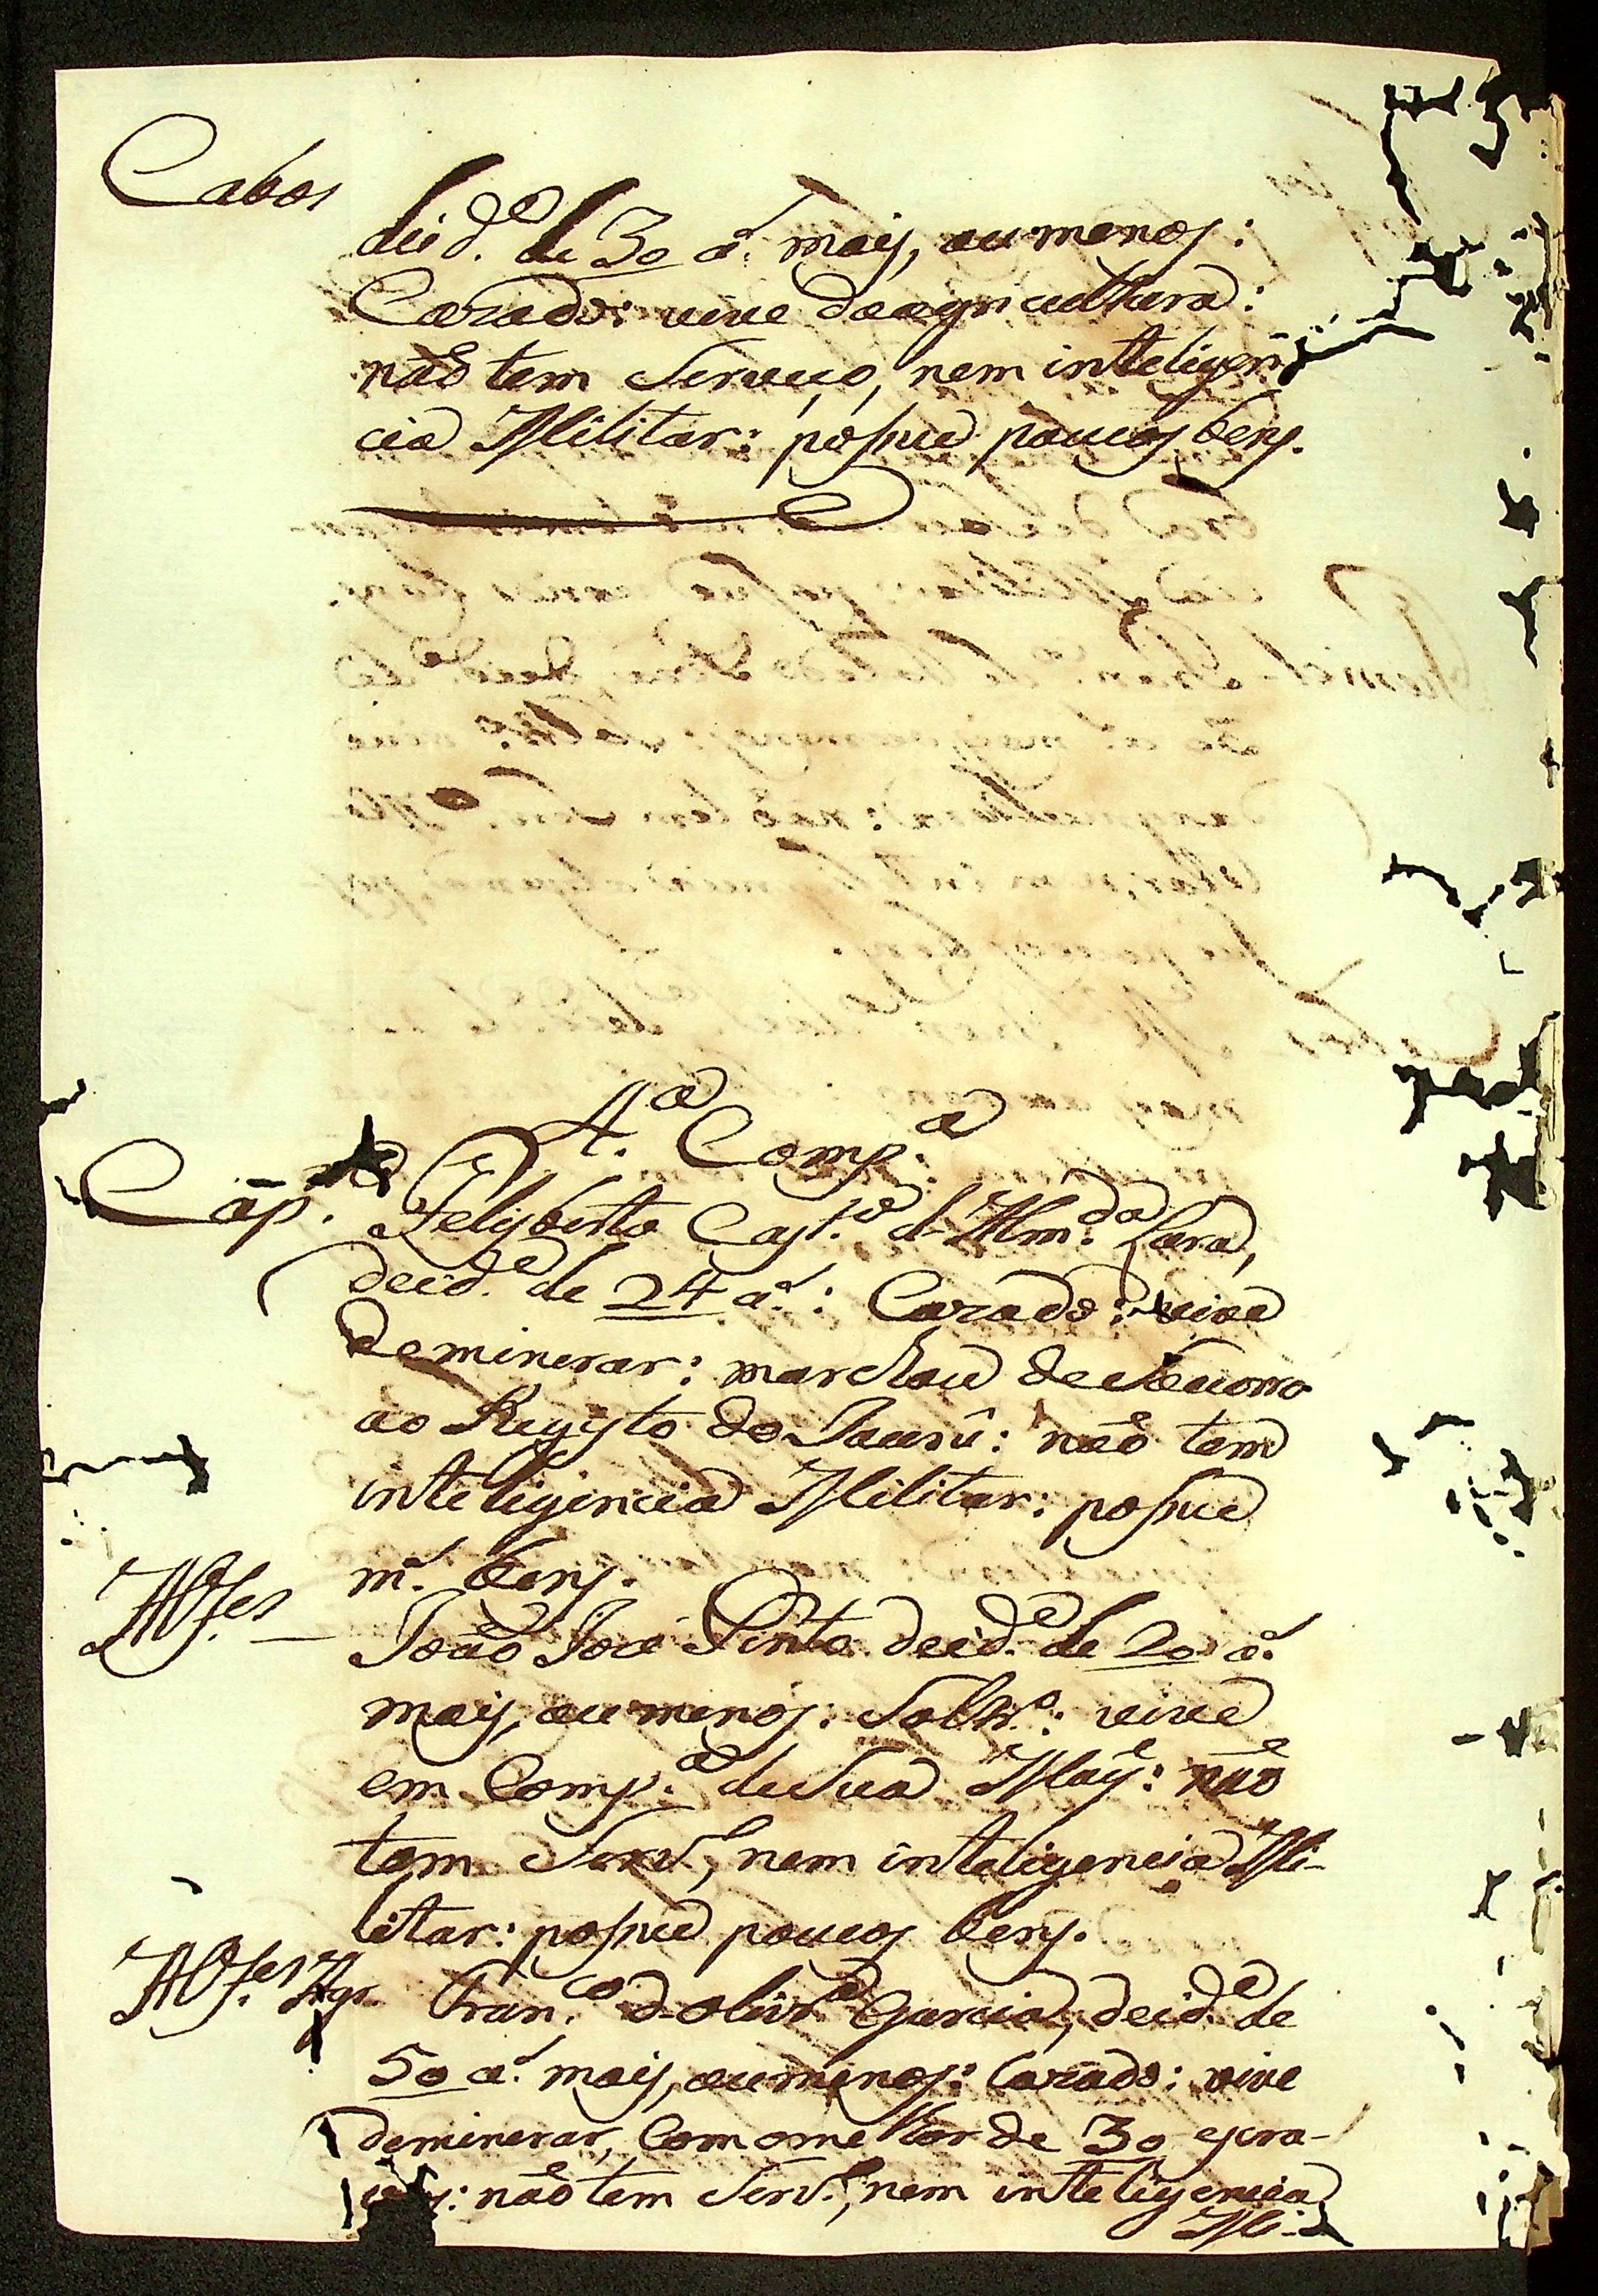 Cabos
deid.e de 30 a.s mais, ou menos:
Cazado: vive daagricultura:
não tem Serviço, nem inteligen-
cia Militar: possue poucos bens.
4.a Comp.a
Cap.m Felisberto Cast.o d'Alm.da Lara,
deid.e de 24 a.s: Cazado: vive
deminerar: marchou deSocorro
ao Registo do Jaurú: não tem
inteligencia Militar: possue
m.s bens.
Alfes João Joze Pinto deid.e de 20 a.s
mais, ou menos: Soltr.o: vive
em Comp.a deSua Máy: não
tem Serv.ço, nem inteligencia Mi-
litar: possue poucos bens.
Alf.es Agr. Fran.co d'Olivr.a Garcia, deid.e de
50 a.s mais, ou menos: Cazado: vive
deminerar, Comomelhor de 30 escra-
vos: não tem Serv.ço, nem inteligencia
Mi-